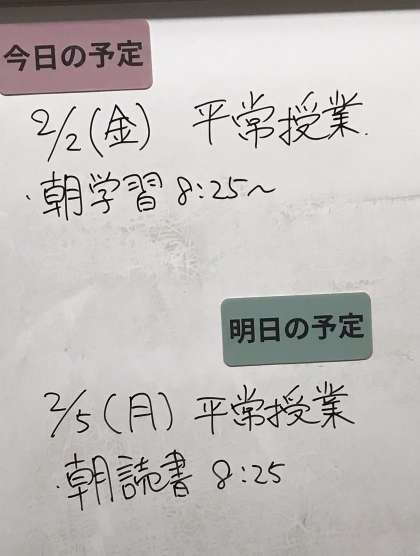 今日の予定
2/2(金) 平常授業.
・朝学習 8:25~
明日の予定
2/5(月) 平常授業
・朝読書 8:25